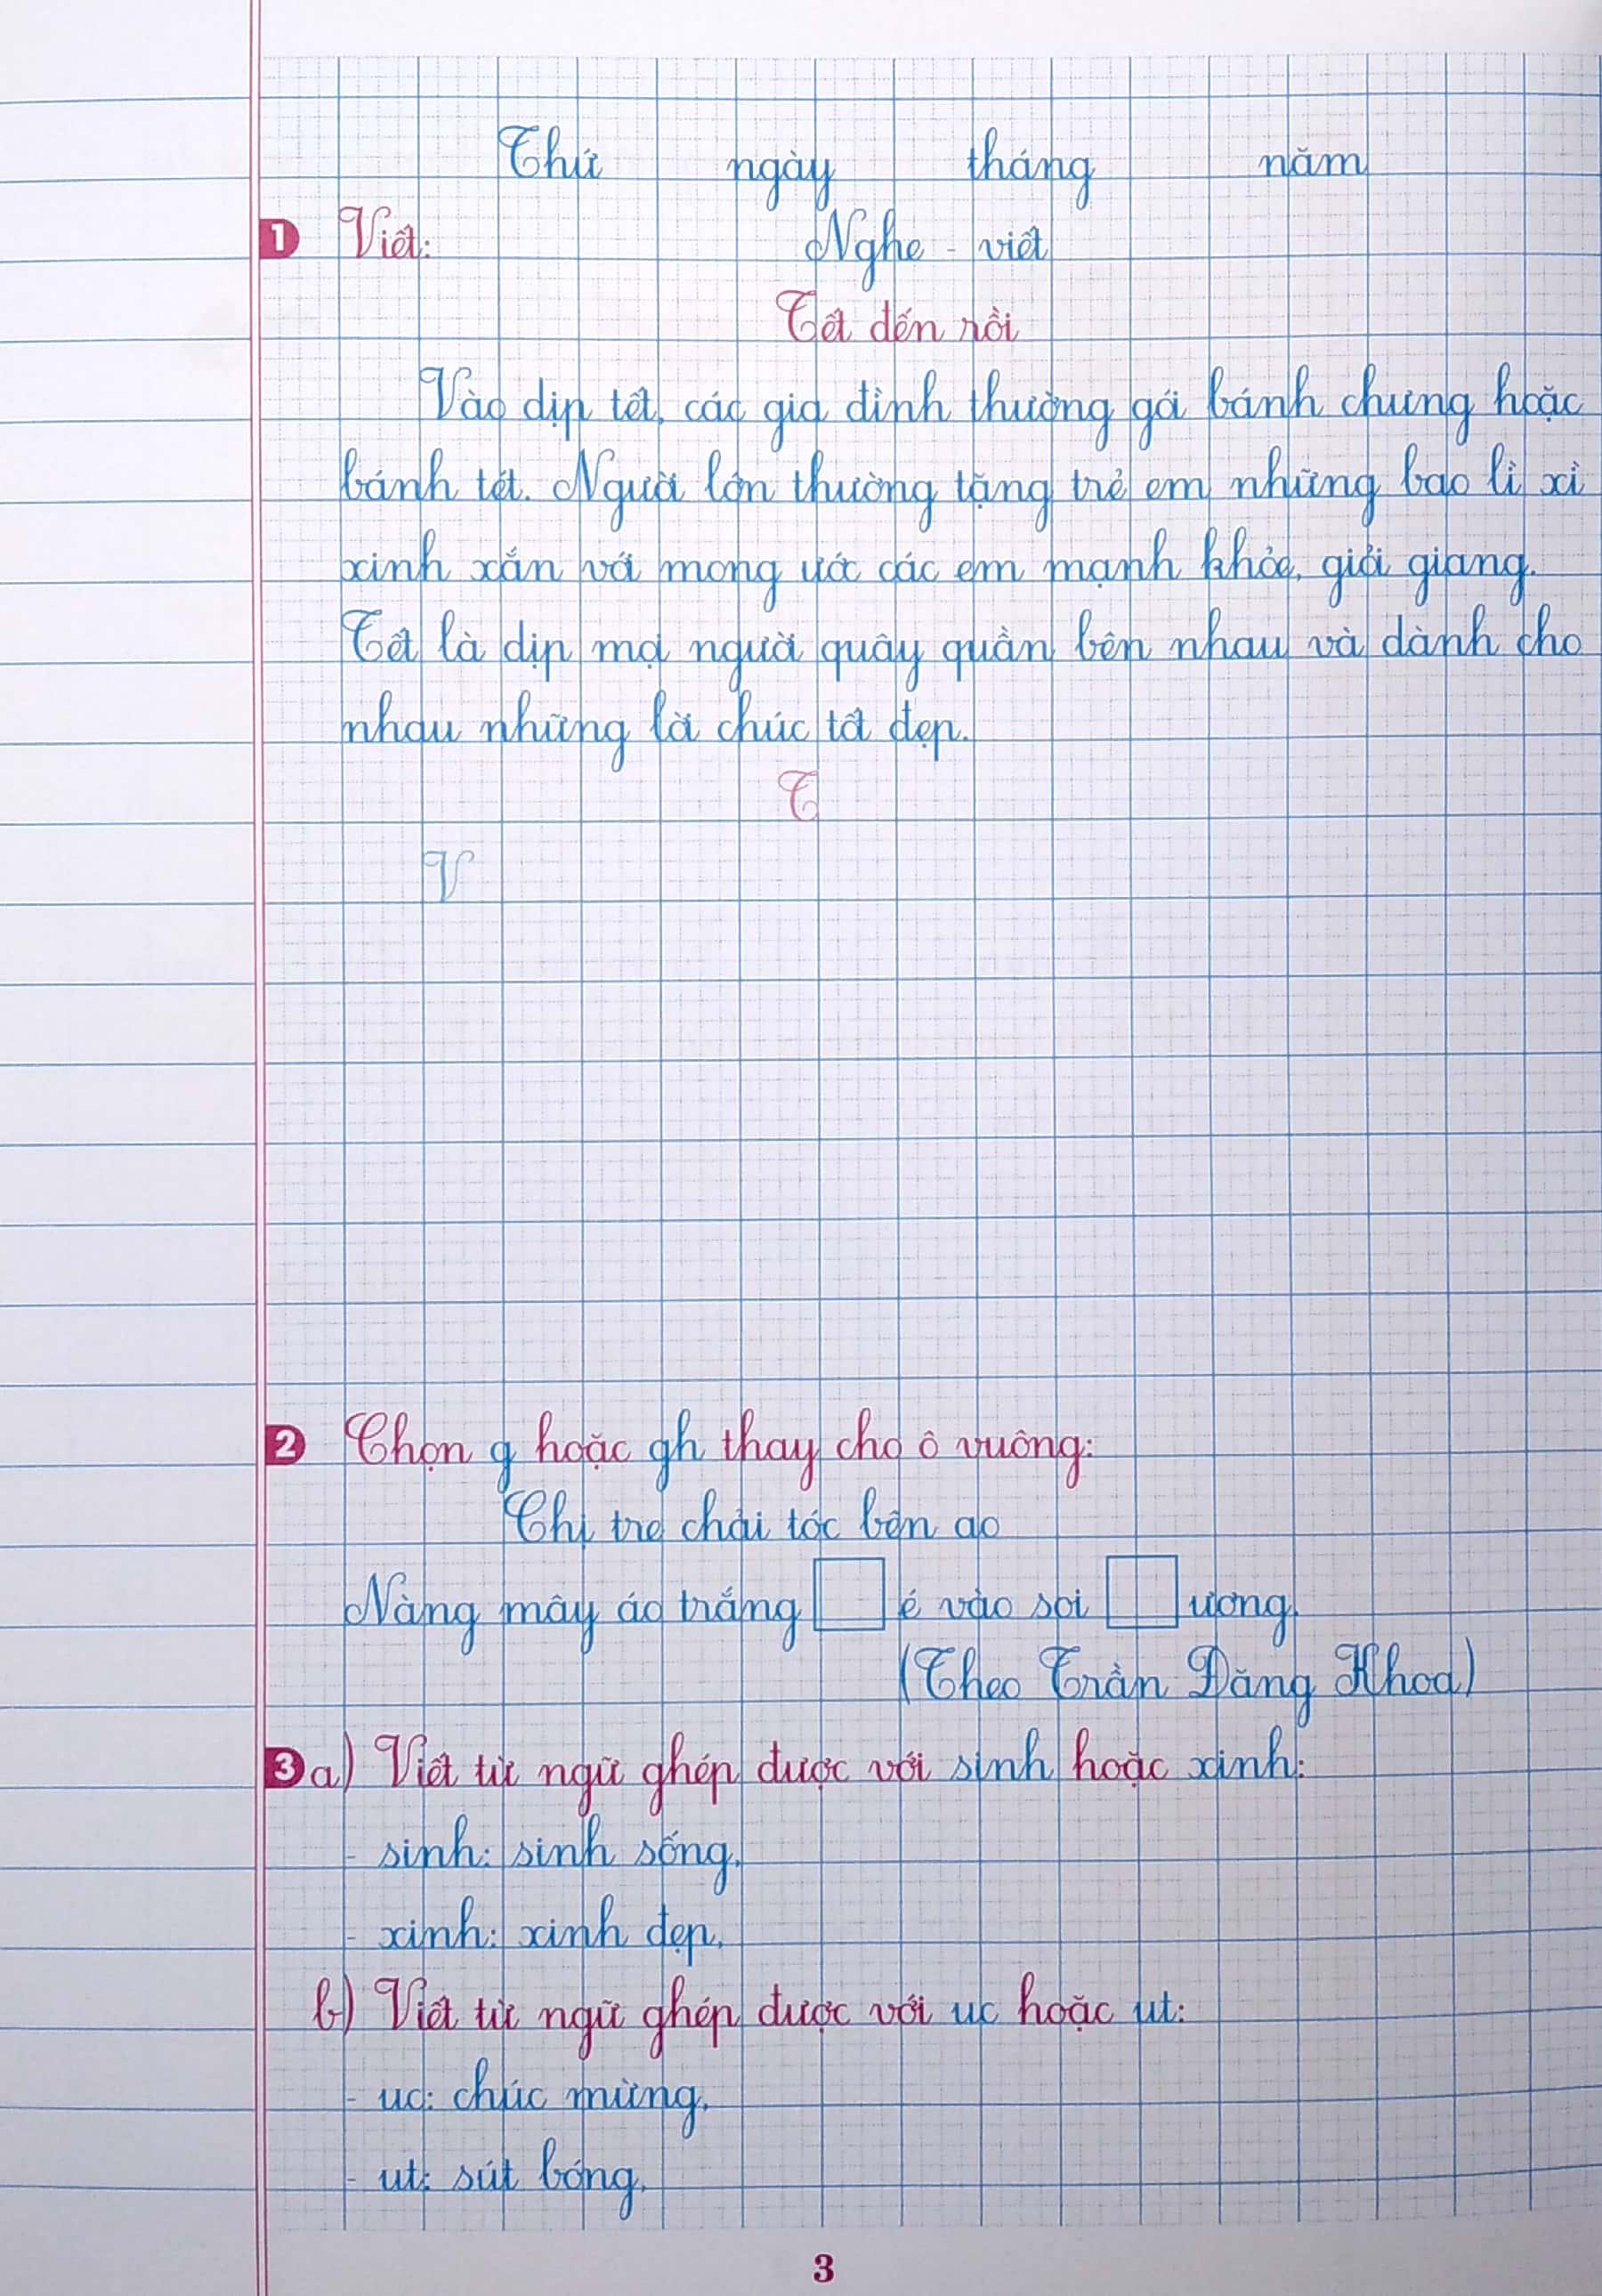 Thứ ngày tháng năm
1 Viết: Nghe - viết
Tết đến rồi
Vào dịp tết, các gia đình thường gói bánh chưng hoặc
bánh tét. Người lớn thường tặng trẻ em những bao lì xì
xinh xắn với mong ước các em mạnh khỏe, giỏi giang.
Tết là dịp mọi người quây quần bên nhau và dành cho
nhau những lời chúc tốt đẹp.
T
V
2 Chọn g hoặc gh thay cho ô vuông:
Chị tre chải tóc bên ao
Nàng mây áo trắng □ é vào soi □ ương.
(Theo Trần Đăng Khoa)
3 a) Viết từ ngữ ghép được với sinh hoặc xinh:
- sinh: sinh sống,
- xinh: xinh đẹp,
b) Viết từ ngữ ghép được với uc hoặc ut:
- uc: chúc mừng,
- ut: sút bóng,
3